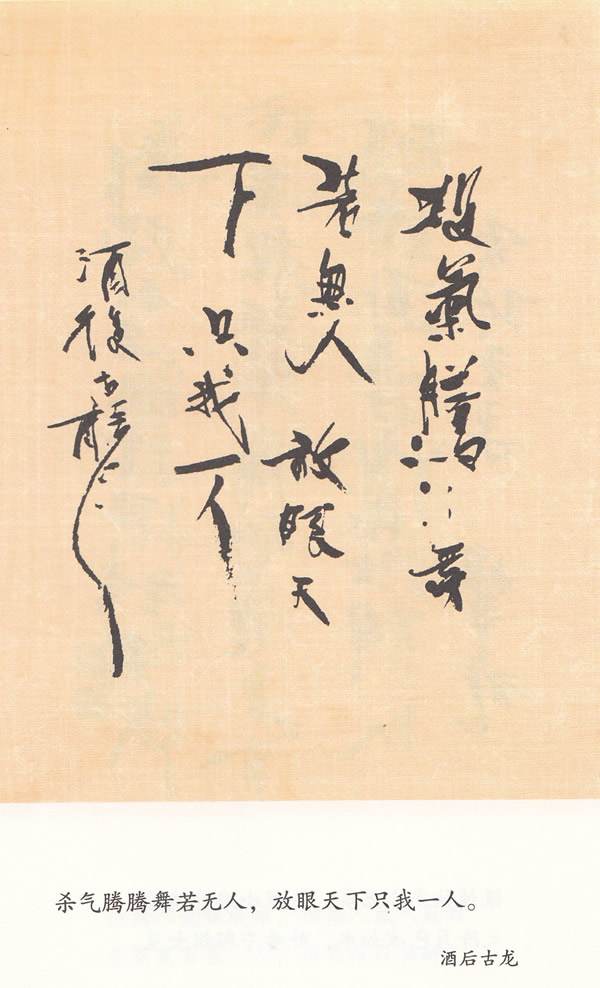 殺氣騰騰舞
若無人 放眼天
下 只我一人
酒後古龍
杀气腾腾舞若无人，放眼天下只我一人。
酒后古龙